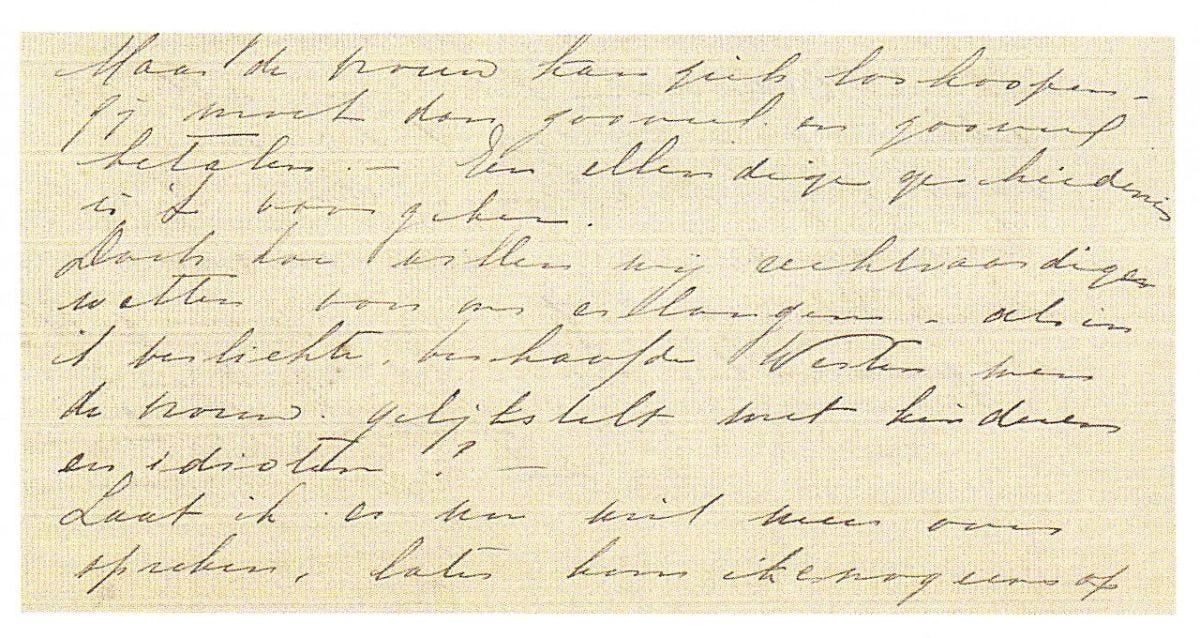 Maar de vrouw kan zich loskoopen –
zij moet dan zooveel en zooveel
betalen. – Een ellendige geschiedenis
is 't voorgeven.
Doch hoe willen wij rechtvaardiger
wetten voor ons erlangen – als in
't verlichte, beschaafde Westen men
de vrouw gelijkstelt met kinderen
en idioten? –
Laat ik er nu niet meer over
spreken, later kom ik er nog eens op